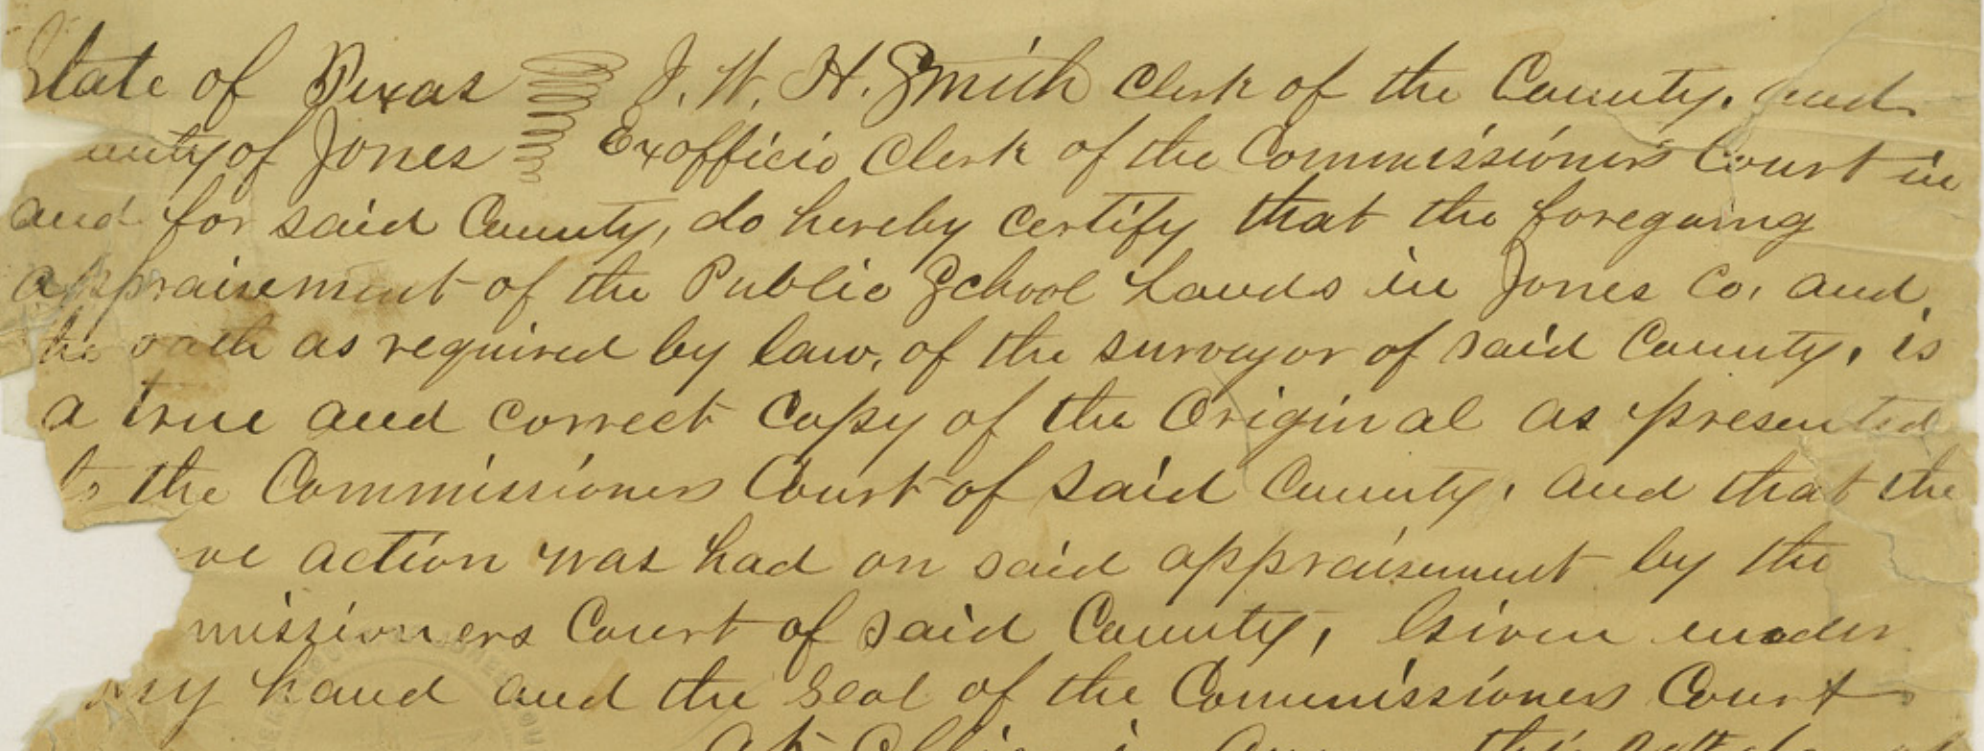 State of Texas J. W. H. Smith Clerk of the County, and
unty of Jones Exofficio Clerk of the Commissioners Court in
and for said County, do hereby certify that the foregoing
appraisement of the Public School Lands in Jones Co, and
he oath as required by law, of the surveyor of said County, is
a true and correct Copy of the Original as presented
to the Commissioners Court of said County, and that the
ve action was had on said appraisement by the
missioners Court of said County, Given under
my hand and the Seal of the Commissioners Court